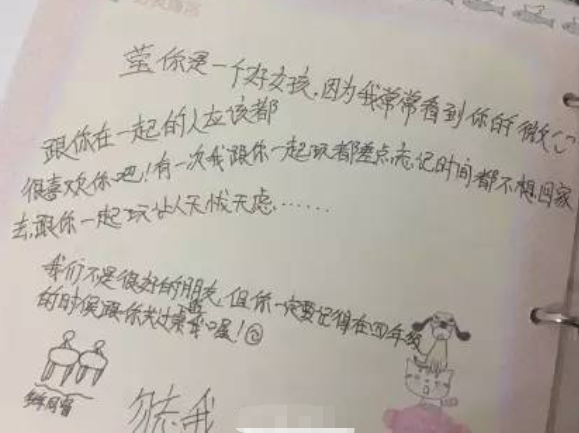 莹你是一个好女孩,因为我常常看到你的微
跟你在一起的人应该都
很喜欢你吧!有一次我跟你一起玩都差点忘记时间都不想回家
去,跟你一起玩让人无忧无虑……
我们不是很好的朋友,但你一定要记得在四年级
的时候跟你过桌的我喔!
勿忘我